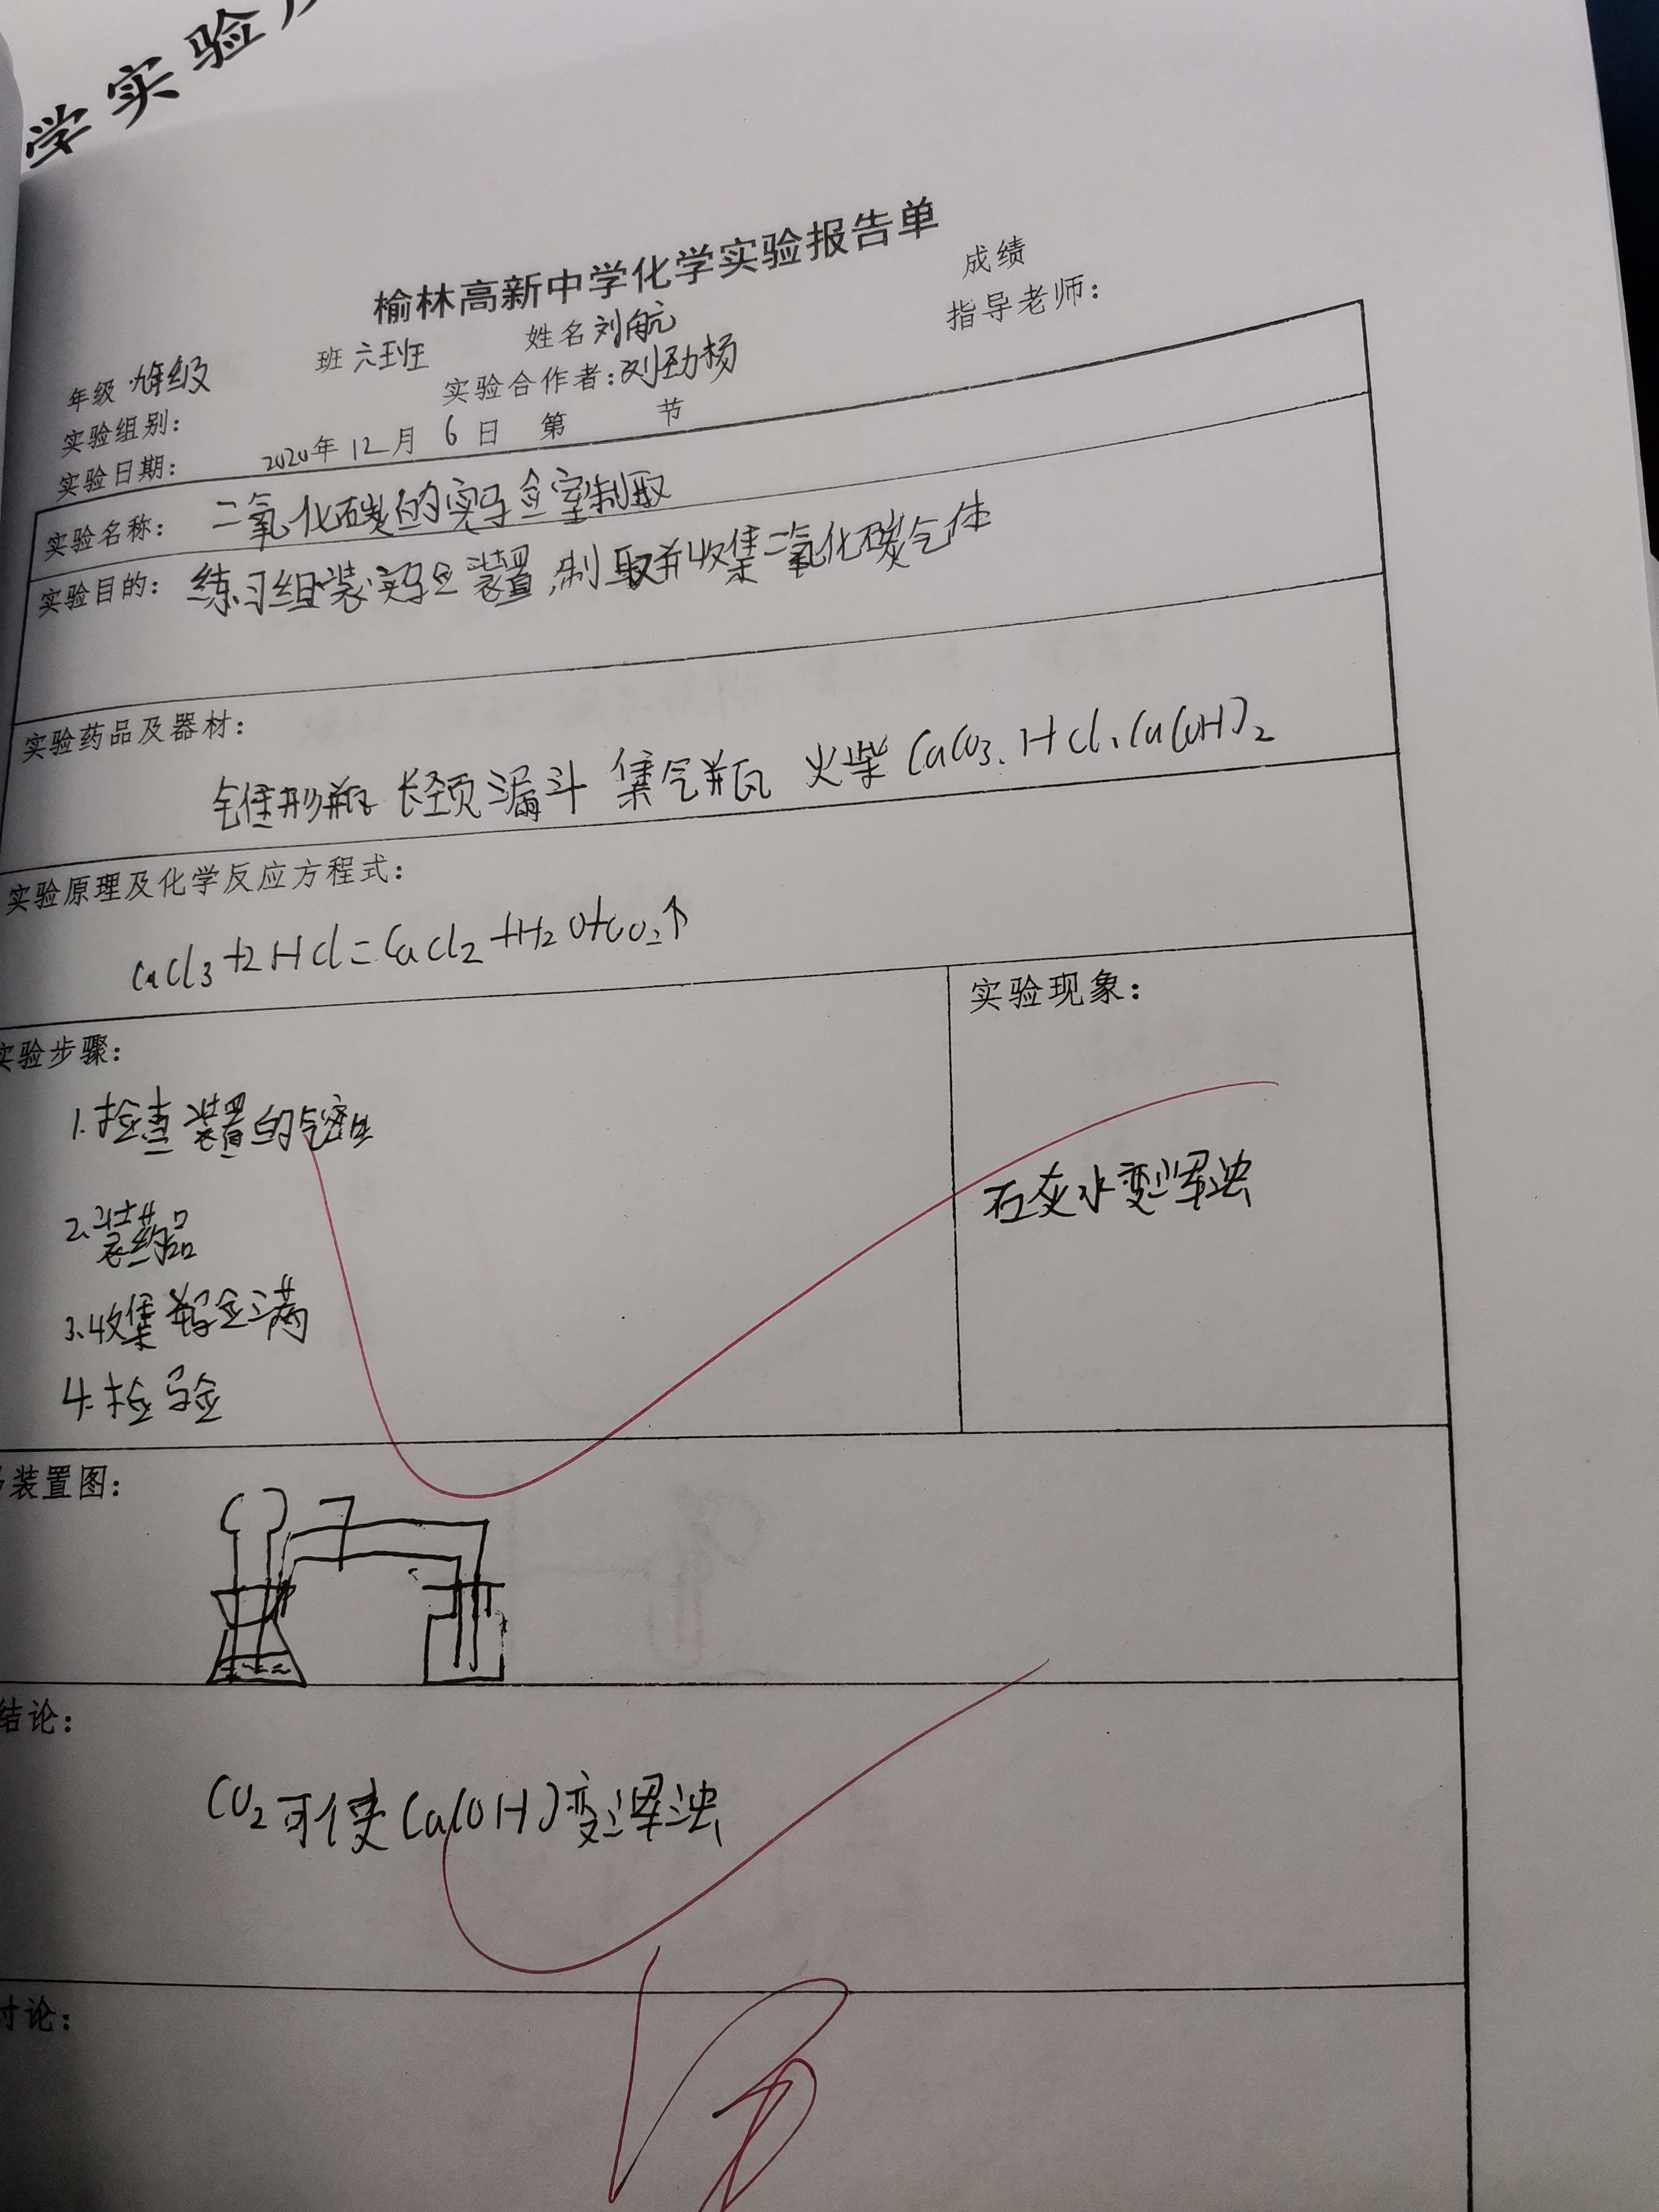 学实验
榆林高新中学化学实验报告单
成绩
年级 九年级 班 六班 姓名 刘航 指导老师：
实验组别： 实验合作者：刘劲杨
实验日期： 2020年 12月 6日 第 节
实验名称： 二氧化碳的实验室制取
实验目的： 练习组装实验装置,制取并收集二氧化碳气体
实验药品及器材：
锥形瓶 长颈漏斗 集气瓶 火柴 CaCO3、HCl、Ca(OH)2
实验原理及化学反应方程式：
CaCl3+2HCl=CaCl2+H2O+CO2↑
实验步骤： 实验现象：
1.检查装置的气密性
石灰水变浑浊
2.装药品
3.收集 验满
4.检验
装置图：
结论：
CO2可使Ca(OH)变浑浊
讨论：